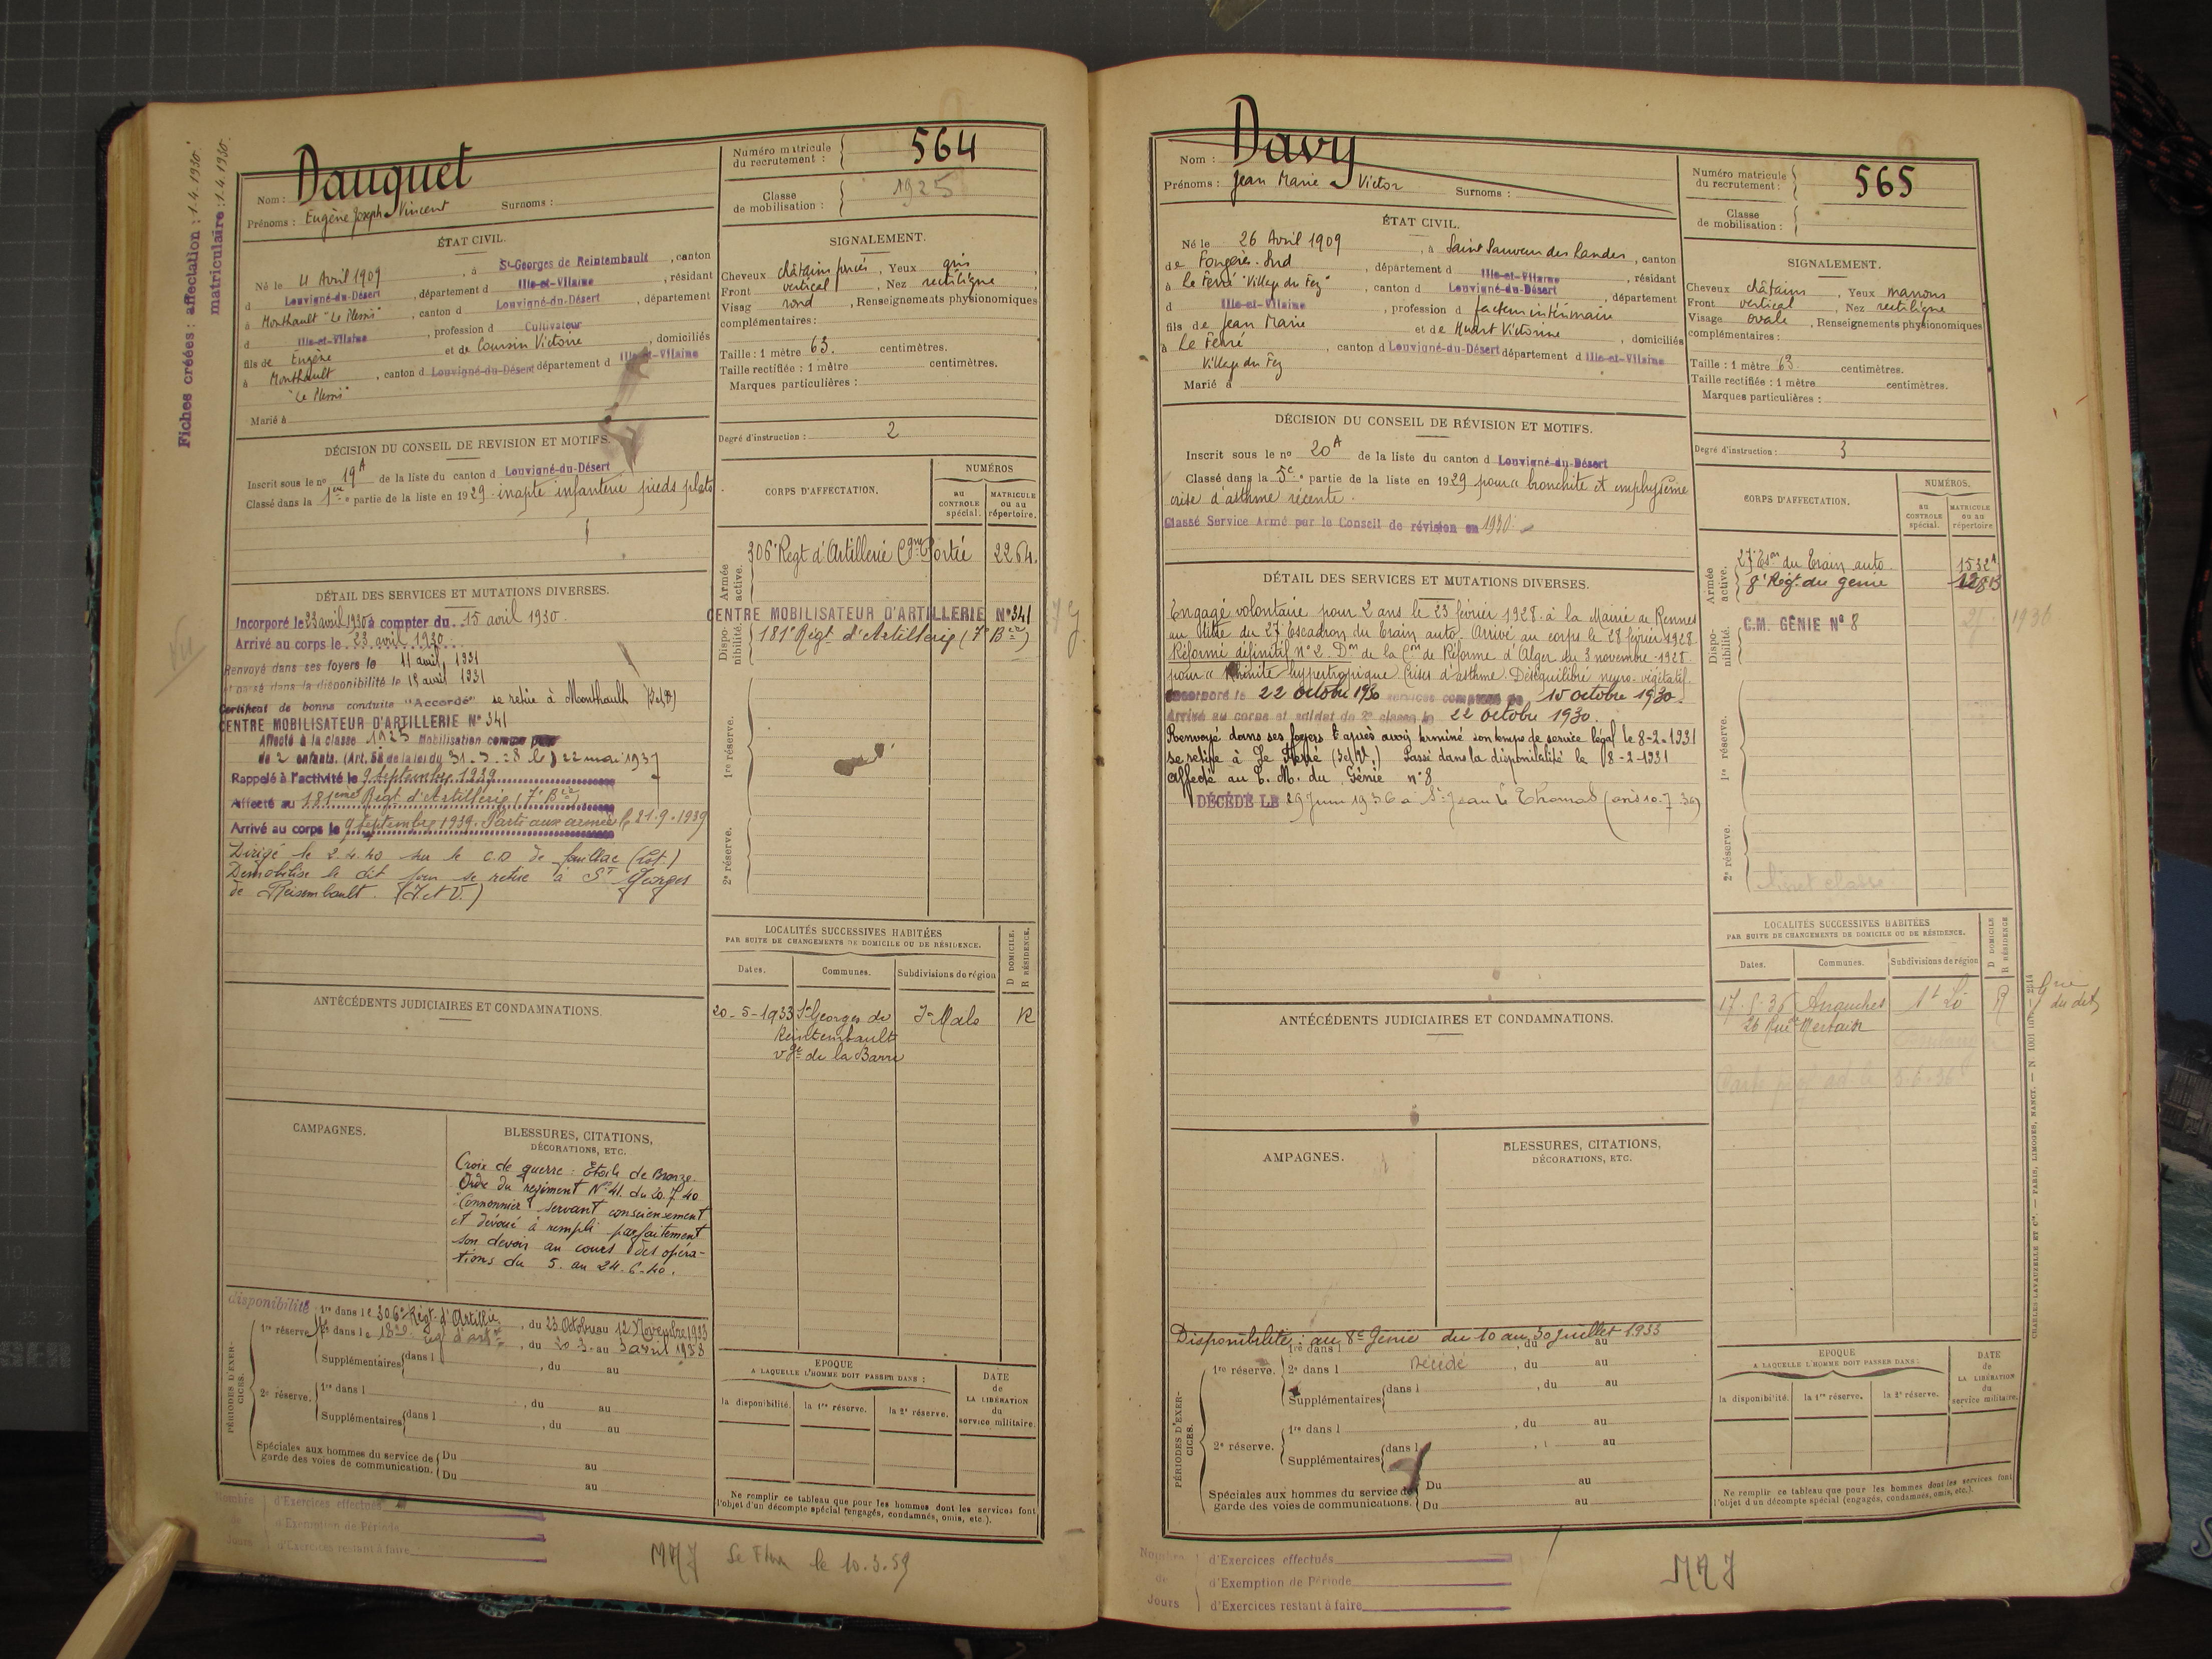 Fiches créées : affectation : 1.4.1930
matriculaire : 1.4.1930
Vu
Nom : Dauguet
Prénoms : Eugène Joseph Vincent Surnoms :
Numéro matricule du recrutement : 564
Classe de mobilisation : 1925
ÉTAT CIVIL.
Né le 4 Avril 1909, à St-Georges de Reintembault, canton
d Louvigné-du-Désert, département d Ille-et-Vilaine, résidant
à Monthault "Le Plessis", canton d Louvigné-du-Désert, département
d Ille-et-Vilaine, profession d Cultivateur
fils de Eugène et de Coursin Victoire, domiciliés
à Monthault, canton d Louvigné-du-Désert département d Ille-et-Vilaine
"Le Plessis"
Marié à
SIGNALEMENT.
Cheveux châtains foncés, Yeux gris,
Front vertical, Nez rectiligne
Visag rond, Renseignements physionomiques
complémentaires :
Taille : 1 mètre 63. centimètres.
Taille rectifiée : 1 mètre centimètres.
Marques particulières :
Degré d'instruction : 2
DÉCISION DU CONSEIL DE REVISION ET MOTIFS.
Inscrit sous le no 19A de la liste du canton d Louvigné-du-Désert
Classé dans la 1ère partie de la liste en 1929 inapte infanterie pieds plats
CORPS D'AFFECTATION.
NUMÉROS
au CONTROLE spécial.
MATRICULE ou au répertoire.
Armée active.
306e Regt d'Artillerie Cgne Portée 2264.
Disponibilité.
CENTRE MOBILISATEUR D'ARTILLERIE N°341
181e Régt d'Artillerie (7e Bie)
1re réserve.
2e réserve.
DÉTAIL DES SERVICES ET MUTATIONS DIVERSES.
Incorporé le 23 avril 1930 à compter du 15 avril 1930.
Arrivé au corps le 23 avril 1930
Renvoyé dans ses foyers le 11 avril 1931
et passé dans la disponibilité le 15 avril 1931
Certificat de bonne conduite "Accordé" se retire à Monthault
CENTRE MOBILISATEUR D'ARTILLERIE N° 341
Affecté à la classe 1925 Mobilisation comme père
de 2 enfants. (Art. 58 de la loi du 31-3-28 le 22 mai 1937
Rappelé à l'activité le 9 Septembre 1939
Affecté au 181ème Régt d'Artillerie (7e Bie)
Arrivé au corps le 9 septembre 1939. Parti aux armées le 21.9.1939
Dirigé le 2.4.40 sur le C.D de (Lot)
Démobilisé le dit jour se retire à St Georges
de Reisembault. (I et V.)
LOCALITÉS SUCCESSIVES HABITÉES
PAR SUITE DE CHANGEMENTS DE DOMICILE OU DE RÉSIDENCE.
Dates. Communes. Subdivisions de région
D DOMICILE. R RÉSIDENCE.
20-5-1933 St Georges de St Malo R
Reintembault
vge de la Barre
ANTÉCÉDENTS JUDICIAIRES ET CONDAMNATIONS.
CAMPAGNES.
BLESSURES, CITATIONS,
DÉCORATIONS, ETC.
Croix de guerre : Etoile de Bronze.
Ordre du régiment N° 41. du 20.7.40
"Connonnier servant consciensement
et dévoué à rempli parfaitement
son devoir au cours des opéra-
tions du 5. au 24.6.40.
disponibilité
PÉRIODES D'EXERCICES.
1re réserve. 1re dans le 306e Régt d'Artillie, du 23 Octobre au 12 Novembre 1933
2e dans le, du 20.3. au 3 avril 1938
Supplémentaires dans l, du au
2e réserve. 1re dans l, du au
Supplémentaires dans l, du au
Spéciales aux hommes du service de garde des voies de communication. Du au
Du au
ÉPOQUE
A LAQUELLE L'HOMME DOIT PASSER DANS :
la disponibilité. la 1re réserve. la 2e réserve.
DATE de LA LIBÉRATION du service militaire.
Ne remplir ce tableau que pour les hommes dont les services font
l'objet d'un décompte spécial (engagés, condamnés, omis, etc.).
Nombre de Jours
d'Exercices effectués
d'Exemption de Période
d'Exercices restant à faire
le 10.3.59
Nom : Davy
Prénoms : Jean Marie Victor Surnoms :
Numéro matricule du recrutement : 565
Classe de mobilisation :
ÉTAT CIVIL.
Né le 26 Avril 1909, à Saint Sauveur des Landes, canton
de Fougères-Sud, département d Ille-et-Vilaine, résidant
à Le Ferré "Village du Fez", canton d Louvigné-du-Désert, département
d Ille-et-Vilaine, profession d facteur intérimaire
fils de Jean Marie et de Huart Victorine, domiciliés
à Le Ferré, canton d Louvigné-du-Désert département d Ille-et-Vilaine
Village du Fez
Marié à
SIGNALEMENT.
Cheveux châtains, Yeux marrons
Front vertical, Nez rectiligne
Visage ovale, Renseignements physionomiques
complémentaires :
Taille : 1 mètre 63 centimètres.
Taille rectifiée : 1 mètre centimètres.
Marques particulières :
Degré d'instruction : 3
DÉCISION DU CONSEIL DE RÉVISION ET MOTIFS.
Inscrit sous le no 20A de la liste du canton d Louvigné-du-Désert
Classé dans la 5e partie de la liste en 1929 pour "bronchite et emphysème
crise d'asthme récente.
Classé Service Armé par le Conseil de révision en 1930
CORPS D'AFFECTATION.
NUMÉROS.
au CONTROLE spécial.
MATRICULE ou au répertoire
Armée active.
27e Eson du Train auto 1532A
8e Régt du génie 12813
Disponibilité.
C.M. GÉNIE N° 8
1936
1re réserve.
2e réserve.
DÉTAIL DES SERVICES ET MUTATIONS DIVERSES.
Engagé volontaire pour 2 ans le 23 février 1928 à la Mairie de Rennes
au titre du 27e Escadron du Train auto. Arrivé au corps le 28 février 1928.
Réformé définitif N° 2 Don de la Con de Réforme d'Alger du 3 novembre 1928
pour "Rhinite hypertropique Crises d'asthme. Déséquilibré neuro-végétatif.
Incorporé le 22 octobre 1930 services comptant de 15 octobre 1930.
Arrivé au corps et soldat de 2e classe le 22 octobre 1930.
Renvoyé dans ses foyers après avoir terminé son temps de service légal le 8-2-1931
se retire à Le Ferré (I et V.) Passé dans la disponibilité le 8-2-1931
affecté au C. M. du Génie n° 8
DÉCÉDÉ LE 29 Juin 1936 à St Jean le Thomas (avis 10.7.36)
LOCALITÉS SUCCESSIVES HABITÉES
PAR SUITE DE CHANGEMENTS DE DOMICILE OU DE RÉSIDENCE.
Dates. Communes. Subdivisions de région
D DOMICILE R RÉSIDENCE.
17.5.36 Avranches St Lô R
26 Rue de Mortain
5-6-36
ANTÉCÉDENTS JUDICIAIRES ET CONDAMNATIONS.
AMPAGNES.
BLESSURES, CITATIONS,
DÉCORATIONS, ETC.
Disponibilité : au 8e Génie du 10 au 30 juillet 1933
PÉRIODES D'EXERCICES.
1re réserve. 1re dans l, du au
2e dans l Décédé, du au
Supplémentaires dans l, du au
2e réserve. 1re dans l, du au
Supplémentaires dans l au
Spéciales aux hommes du service de garde des voies de communications. Du au
Du au
EPOQUE
A LAQUELLE L'HOMME DOIT PASSER DANS :
la disponibilité. la 1re réserve. la 2e réserve.
DATE de LA LIBÉRATION du service militaire.
Ne remplir ce tableau que pour les hommes dont les services font
l'objet d'un décompte spécial (engagés, condamnés, omis, etc.).
CHARLES LAVAUZELLE ET Cie. — PARIS, LIMOGES, NANCY.
Nombre de Jours
d'Exercices effectués
d'Exemption de Période
d'Exercices restant à faire